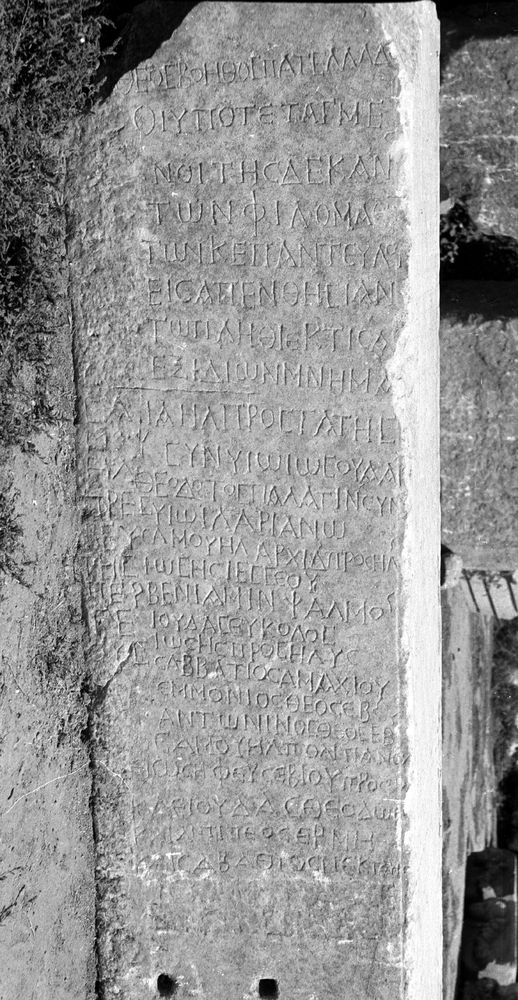 ΘΕΟϹΒΟΗΘΟϹΠΑΤΕΛΛΑΔ
ΟΙΥΠΟΤΕΤΑΓΜΕ
ΝΟΙΤΗϹΔΕΚΑΝ
ΤΩΝΦΙΛΟΜΑΘ
ΤΩΝΚΕΠΑΝΤΕΥΛΟΓ
ΕΙϹΑΠΕΝΘΗϹΙΑΝ
ΤΩΠΛΗΘΙΕΚΤΙϹΑ
ΕΞΙΔΙΩΝΜΝΗΜΑ
ΙΑΗΛΠΡΟϹΤΑΤΗϹ
ϹΥΝΥΙΩΙΩϹΟΥΑΑΡ
ΘΕΟΔΟΤΟϹΠΑΛΑΤΙΝϹΥΝ
ΥΙΩΙΛΑΡΙΑΝΩ
ϹΑΜΟΥΗΛΑΡΧΙΔΠΡΟϹΗΛ
ΙΩϹΗϹΙΕϹΣΕΟΥ
ΒΕΝΙΑΜΙΝΨΑΛΜΟ
ΙΟΥΔΑϹΕΥΚΟΛΟϹ
ΙΩϹΗϹΠΡΟϹΗΛΥϹ
ϹΑΒΒΑΤΙΟϹΑΜΑΧΙΟΥ
ΕΜΜΟΝΙΟϹΘΕΟϹΕΒ
ΑΝΤΩΝΙΝΟϹΘΕΟϹΕΒ
ϹΑΜΟΥΗΛΠΟΛΙΤΙΑΝΟΥ
ΙΩϹΗΦΕΥϹΕΒΙΟΥΠΡΟϹΗ
ΚΑΕΙΟΥΔΑϹΘΕΟΔΩΡ
ΚΑΙΑΝΤΙΠΕΟϹΕΡΜΗ
ΚΑΙϹΑΒΑΘΙΟϹΝΕΚΤΑΡΙϹ